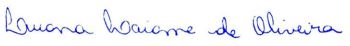 Luana Daiane de Oliveira